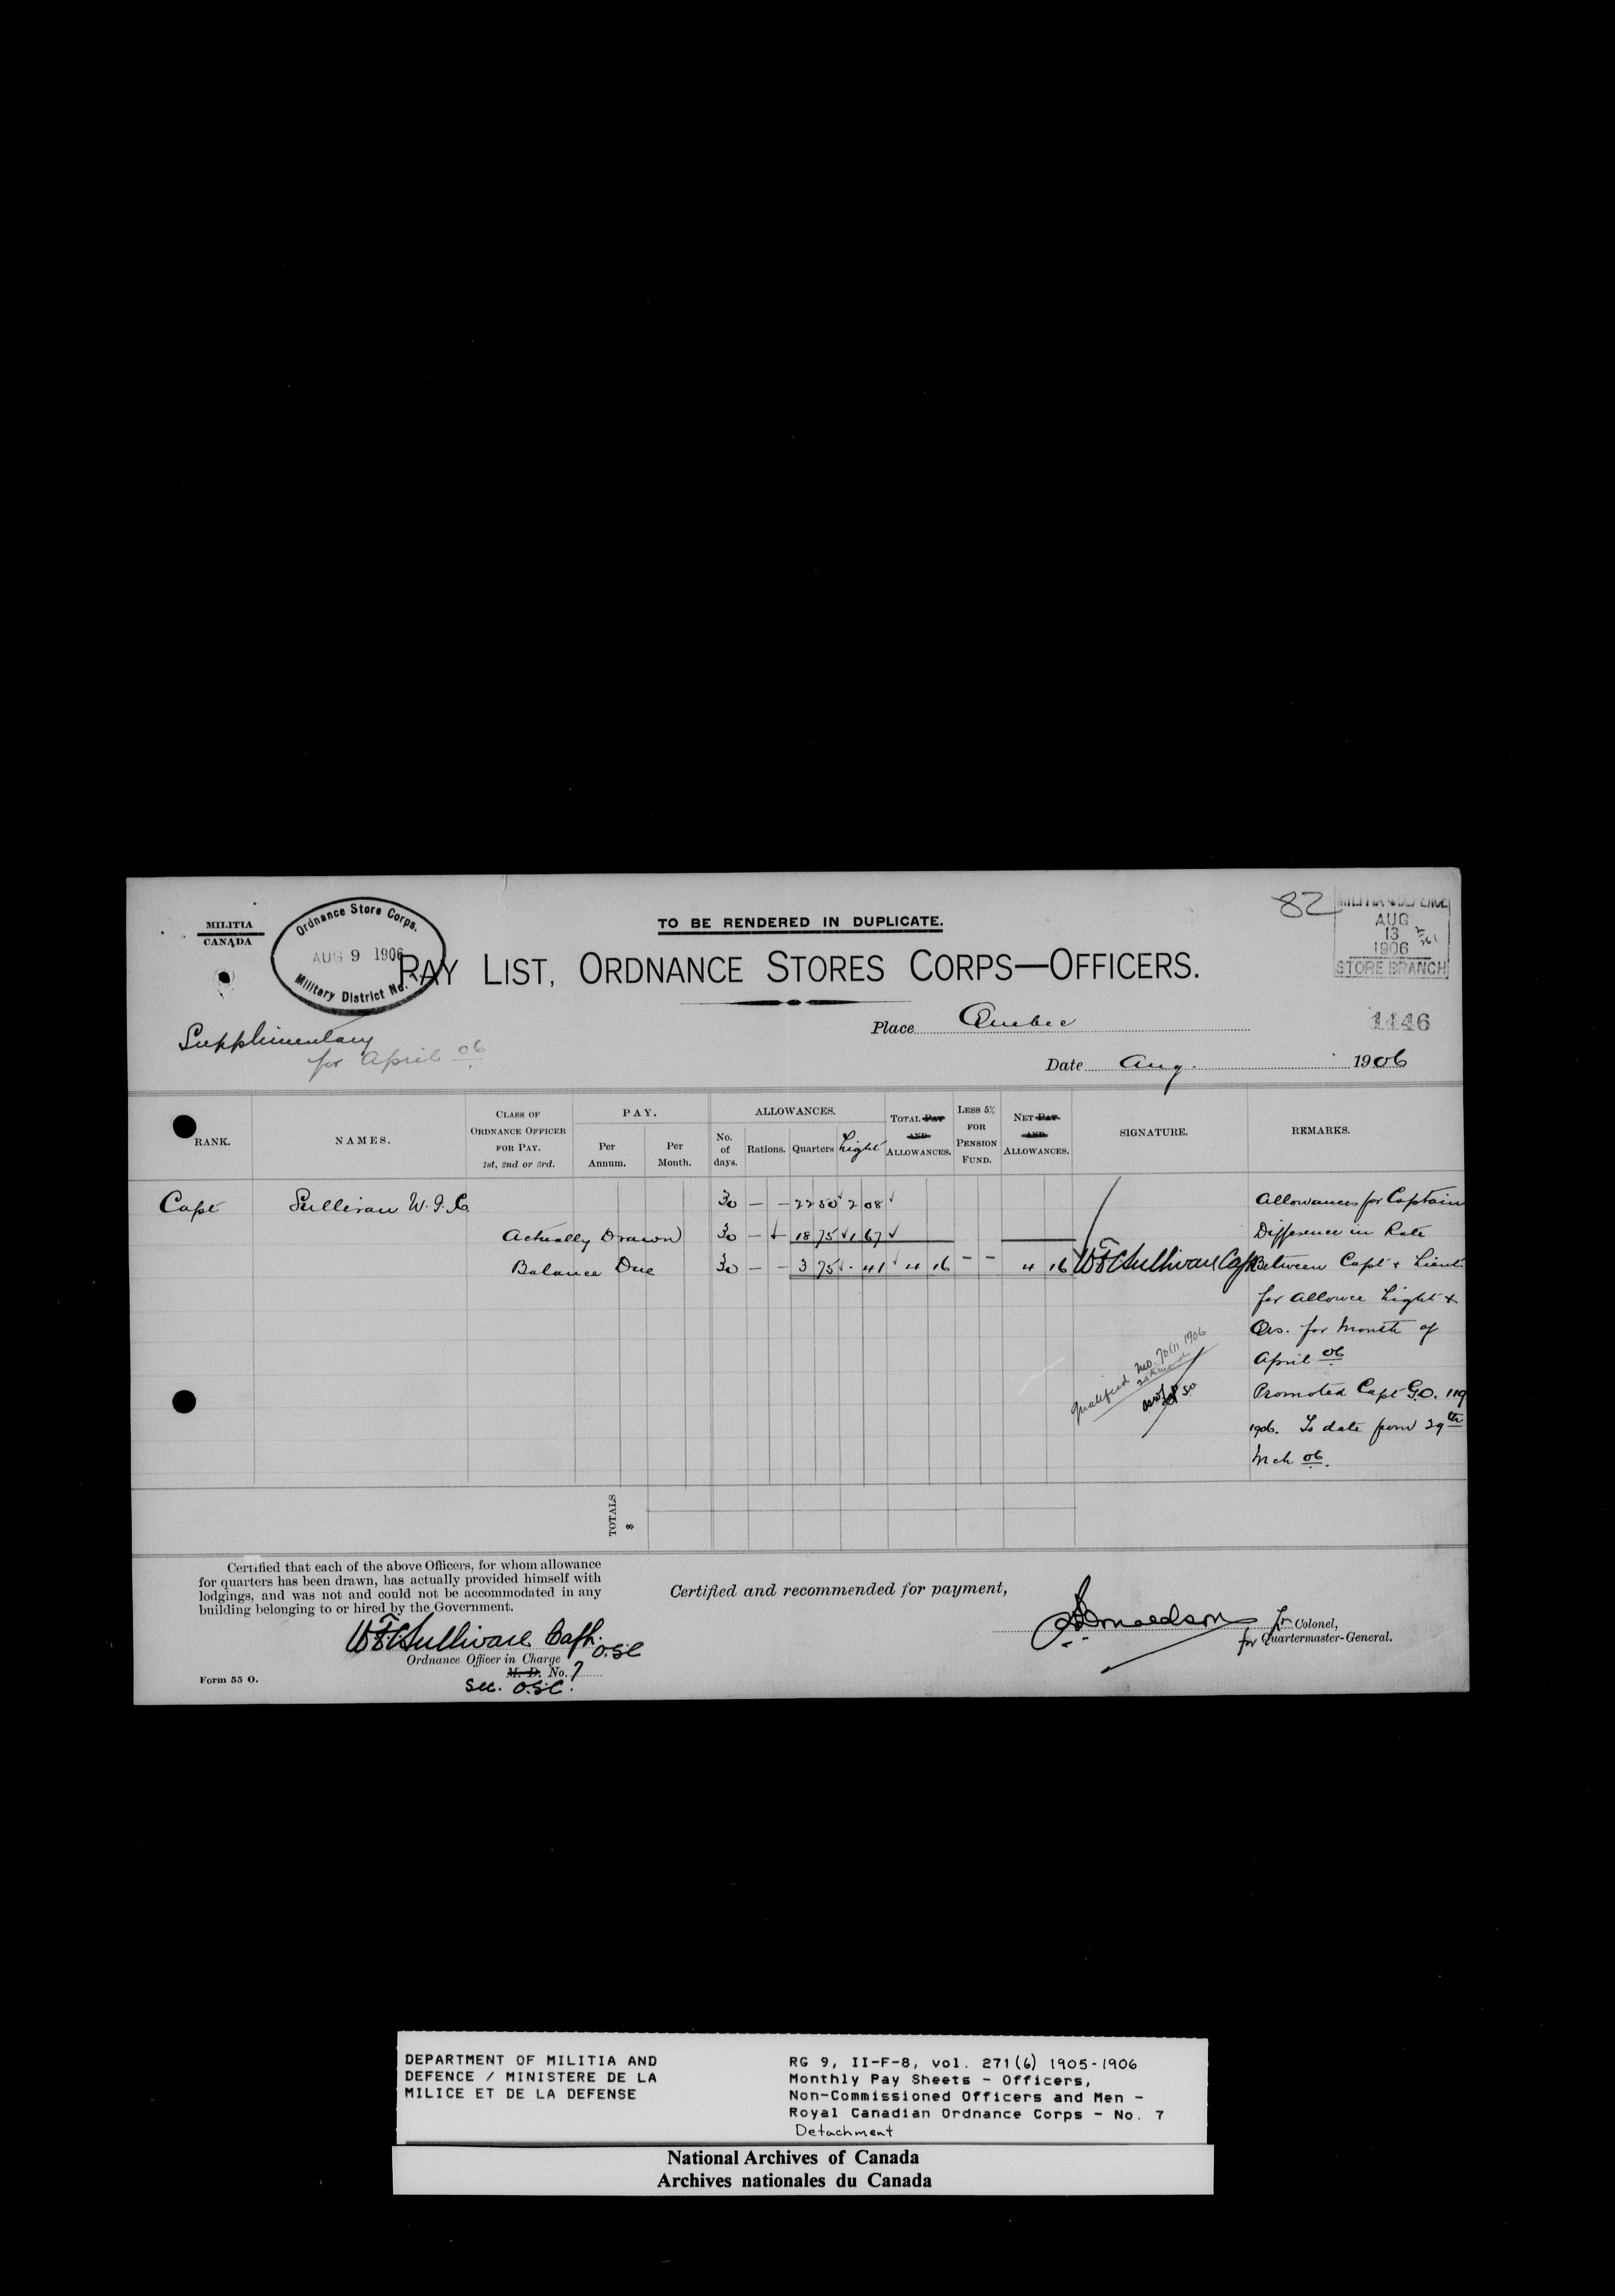 MILITIA
CANADA
Ordnance Store Corps.
AUG 9 1906
Military District No. 7.
TO BE RENDERED IN DUPLICATE.
82
MILITIA & DEFENCE
AUG
13
1906
STORE BRANCH
PAY LIST, ORDNANCE STORES CORPS—OFFICERS.
Place Quebec
1446
Supplimentary
for April 06
Date Aug. 1906
RANK.
NAMES.
CLASS OF ORDNANCE OFFICER FOR PAY. 1st, 2nd or 3rd.
PAY.
Per Annum.
Per Month.
ALLOWANCES.
No. of days.
Rations.
Quarters
Light
TOTAL PAY AND ALLOWANCES.
LESS 5% FOR PENSION FUND.
NET PAY AND ALLOWANCES.
SIGNATURE.
REMARKS.
Capt Sullivan W. F. C. 30 — — 22 50 2 08 Allowances for Captain
Actually Drawn 30 — 18 75 1 67 Difference in Rate
Balance Due 30 — — 3 75 · 41 4 16 – – 4 16 WFC Sullivan Capt Between Capt & Lieut.
for Allowce Light &
Qrs. for Month of
April 06
Promoted Capt G.O. 119
1906. To date from 29th
Mch 06.
Qualified
1906
TOTALS $
Certified that each of the above Officers, for whom allowance
for quarters has been drawn, has actually provided himself with
lodgings, and was not and could not be accommodated in any
building belonging to or hired by the Government.
WFC Sullivan Capt. O.S.C
Ordnance Officer in Charge
M. D. No. 7
Sec. O.S.C.
Form 55 O.
Certified and recommended for payment,
Donaldson
Lt. Colonel,
for Quartermaster-General.
DEPARTMENT OF MILITIA AND
DEFENCE / MINISTERE DE LA
MILICE ET DE LA DEFENSE
RG 9, II-F-8, vol. 271(6) 1905-1906
Monthly Pay Sheets - Officers,
Non-Commissioned Officers and Men -
Royal Canadian Ordnance Corps - No. 7
Detachment
National Archives of Canada
Archives nationales du Canada